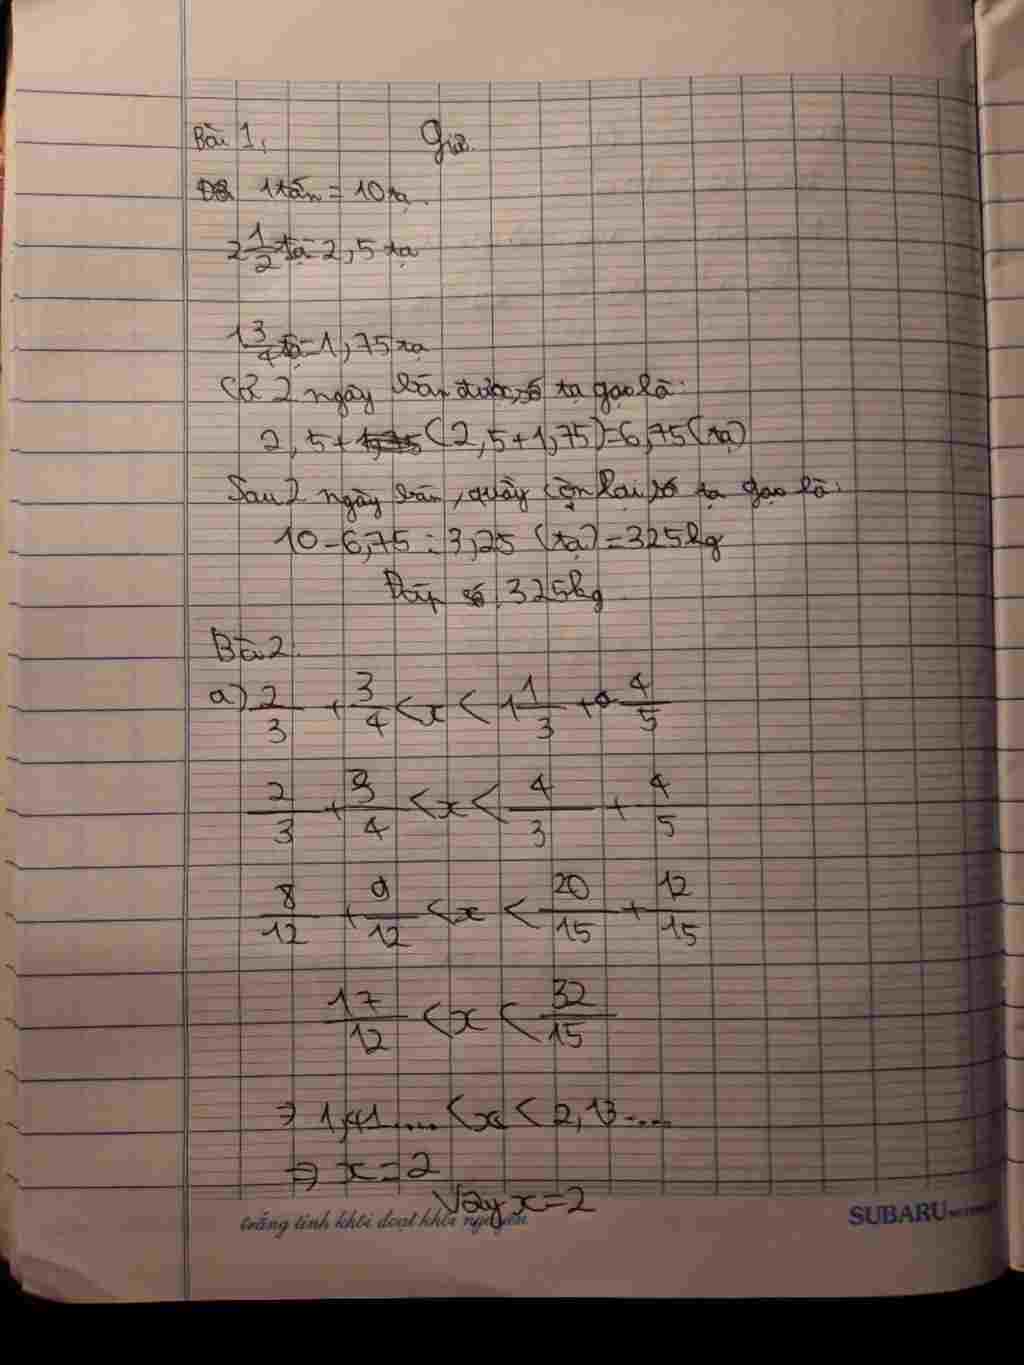 Bài 1, Giải
Đổi 1 tấn = 10 tạ.
2 1/2 tạ = 2,5 tạ
1 3/4 tạ = 1,75 tạ
Cả 2 ngày bán được số tạ gạo là:
2,5 + (2,5 + 1,75) = 6,75 (tạ)
Sau 2 ngày bán, quầy còn lại số tạ gạo là:
10 - 6,75 = 3,25 (tạ) = 325kg
Đáp số: 325kg
Bài 2.
a) 2/3 + 3/4 < x < 1 1/3 + 4/5
2/3 + 3/4 < x < 4/3 + 4/5
8/12 + 9/12 < x < 20/15 + 12/15
17/12 < x < 32/15
⇒ 1,41.... < x < 2,13....
⇒ x = 2
Vậy x = 2
trắng tinh khôi đoạt khôi nguyên SUBARU